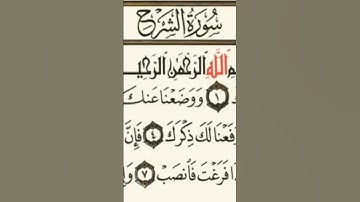 سُورَةُ الشَّرْحِ
اللَّهِ الرَّحْمَٰنِ الرَّحِي
١ وَوَضَعْنَا عَنكَ
فَعْنَا لَكَ ذِكْرَكَ ٤ فَإِنَّ
ا فَرَغْتَ فَانصَبْ ٧ وَإِ